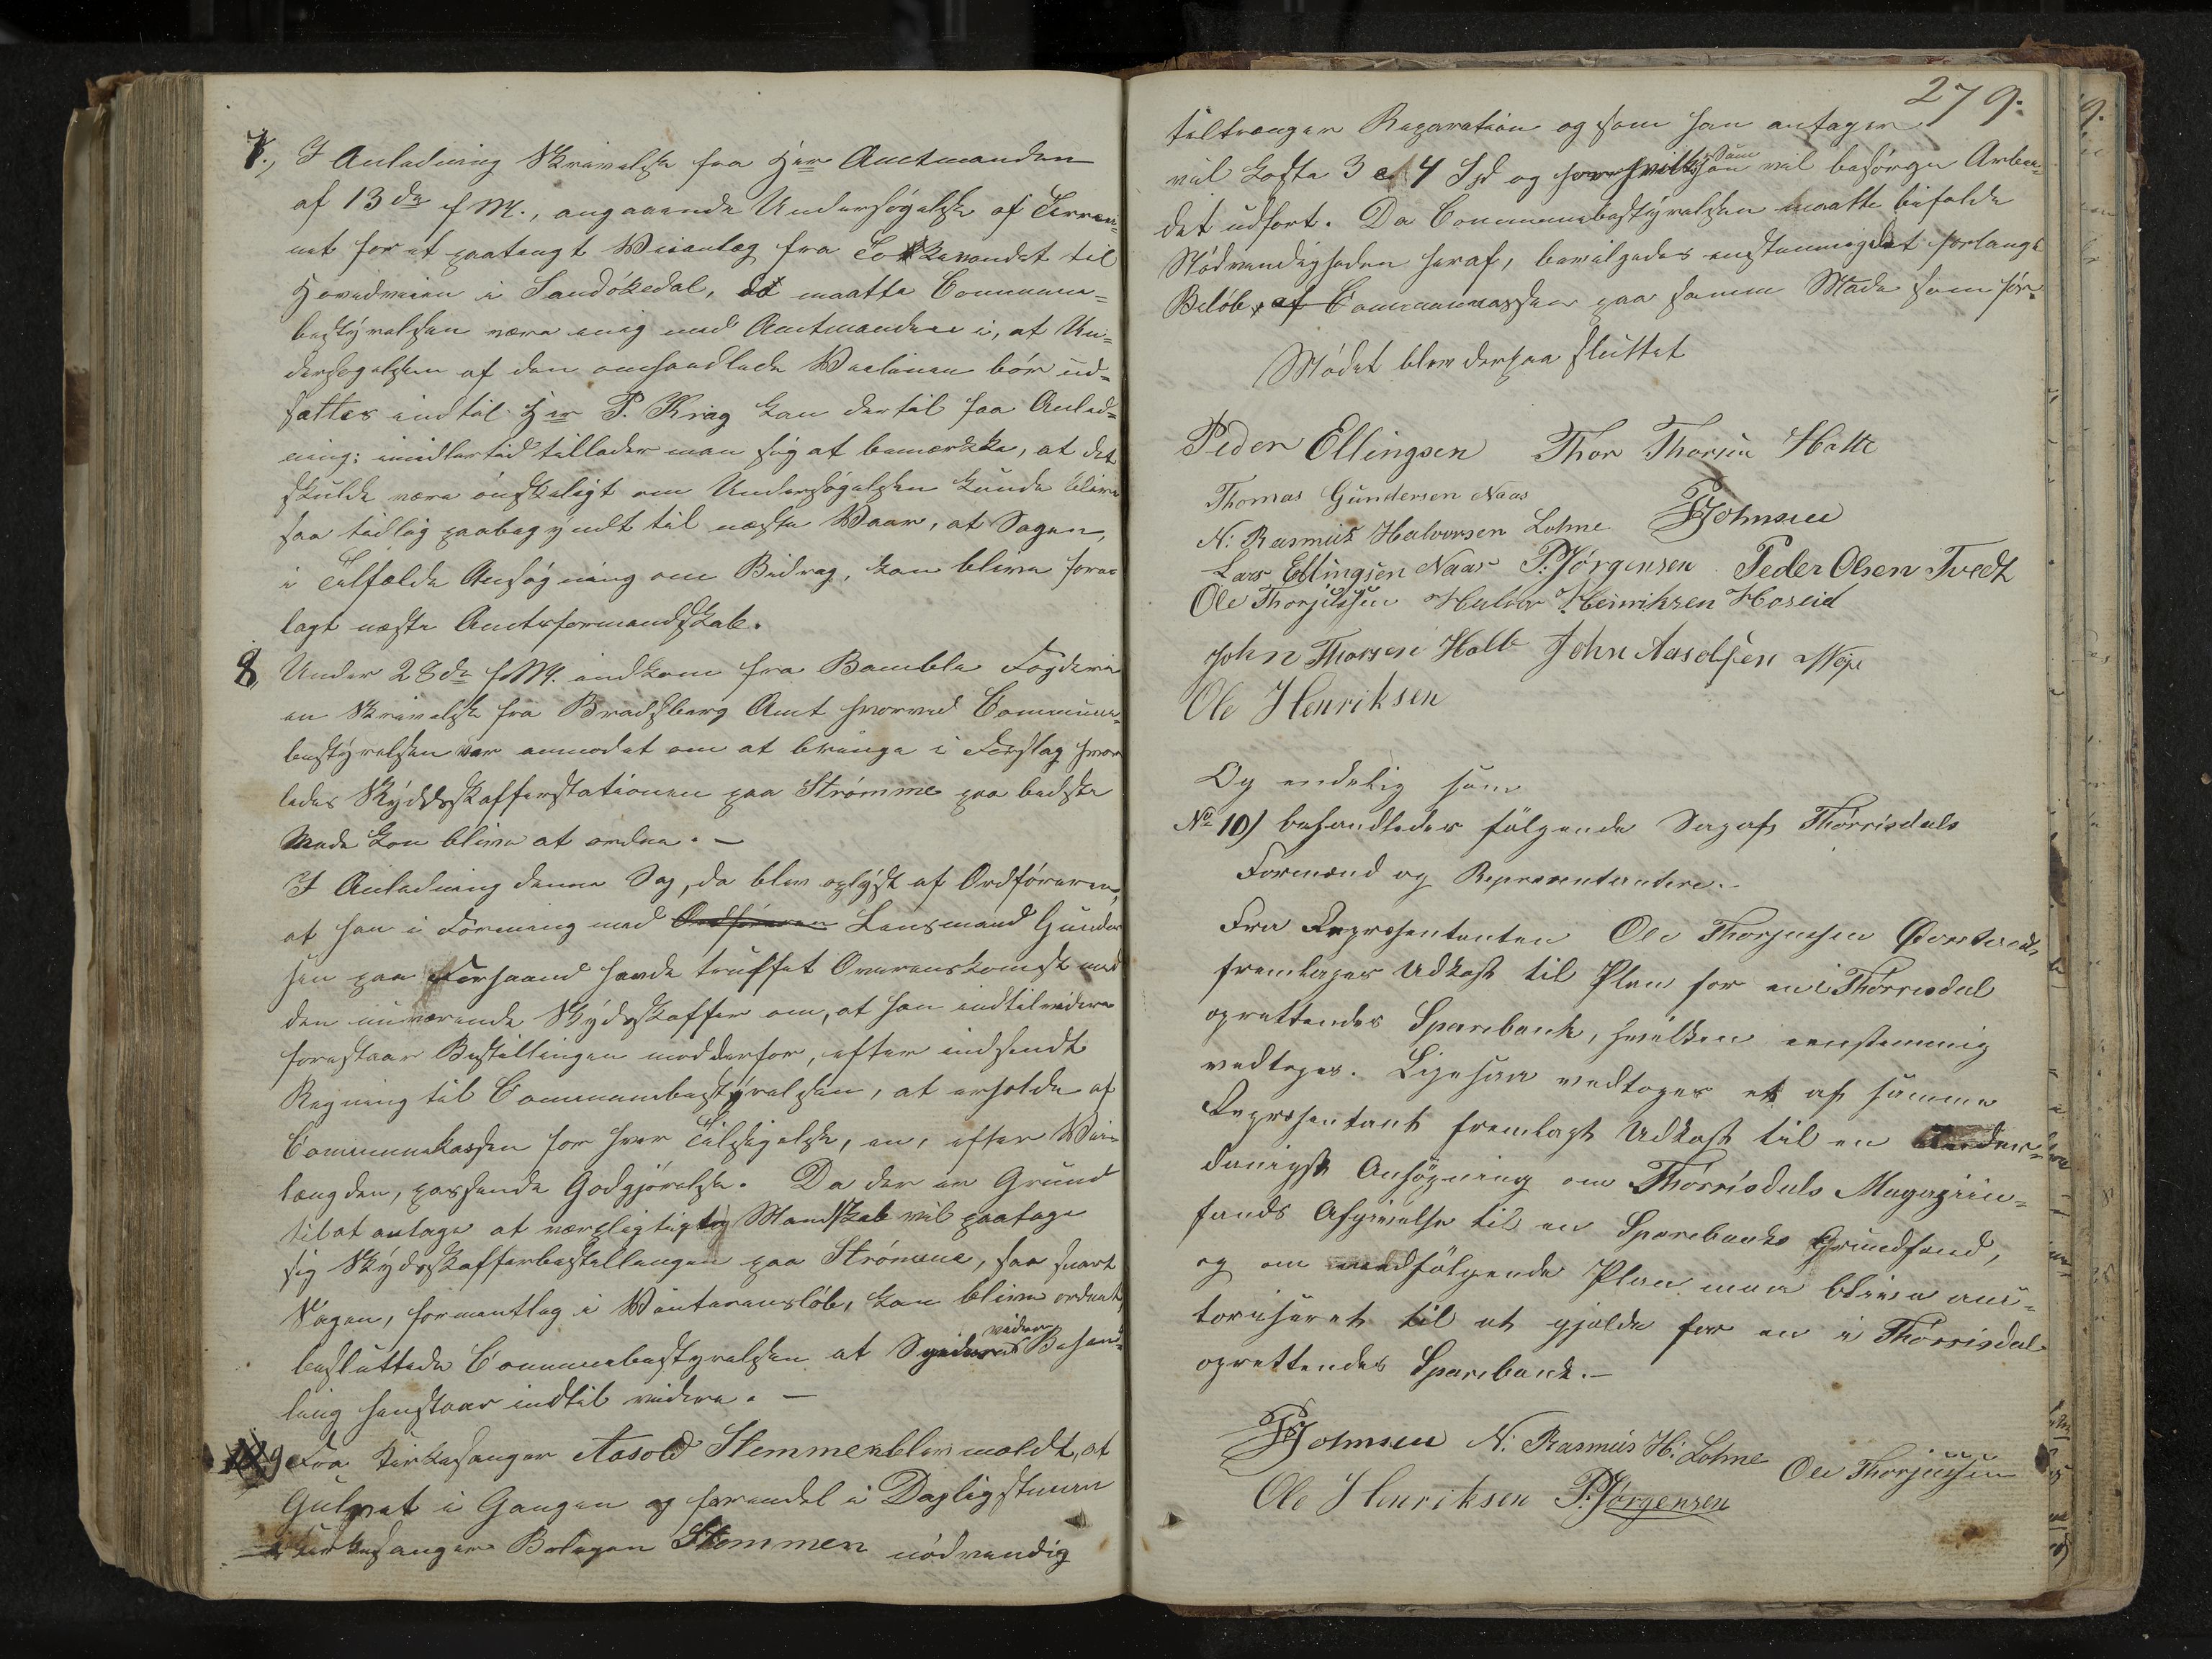 7., I Anledning Skrivelse fra Herr Amtmanden
af 13de f. M., angaaende Undersøgelse af Terræn-
net for et paatængt Veianlæg fra Tokkevandet til
Hovedveien i Sandökedal, da maatte Commune-
bestyrelsen være enig med Amtmanden i, at Un-
dersøgelsen af den omhandlede Veilinie bör ud-
sættes indtil Herr P. Krag kan dertil faa Anled-
ning; imidlertid tillader man sig at bemærkke, at det
skulde være önskeligt om Undersögelsen kunde blive
saa tidlig paabegyndt til næste Vaar, at Sagen,
i Tilfælde Ansögning om Bidrag, kan blive fore-
lagt næste Amtsformandskab.
8, Under 28de f. M. indkom fra Bamble Fogderie
en Skrivelse fra Bradsberg Amt hvorved Commune-
bestyrelsen var anmodet om at bringe i Forslag hvor
ledes Skydsskafferstationen paa Strömme paa bedste
Maade kan blive at ordne. -
I Anledning denne Sag, da blev oplyst af Ordföreren,
at han i Forening med Ordföreren Lensmand Gunder
sen paa Forhaand havde truffet Overenskomst med
den nuværende Skydsskaffer om, at han indtil videre
forestaar Bestillingen mod derfor, efter indsendt
Regning til Communebestyrelsen, at erholde af
Communekassen for hver Tilsigelse, en, efter Vei-
længden, passende Godgjörelse. Da der er Grund
til at antage at værpligtigtig Mandskab vil paatage
sig Skydsskafferbestillingen paa Strömme, saa snart
Sagen, formentlig i Vinterens löb, kan blive ordnet,
besluttede Communebestyrelsen at Sagens videre Behand-
ling henstaar indtil videre. -
9 Fra Kirkesanger Aasold Stemmen blev mældt, at
Gulvet i Gangen og forendel i Dagligstuen
i Kirkesanger Boligen Stemmen nödvendig
279.
tiltrænger Reparation og som han antager
vil koste 3 a 4 Spd og som han vil besørge Arbei-
det udfört. Da Communebestyrelsen maatte bifalde
Nödvendigheden heraf, bevilgedes enstemmig det forlangte
Belöb, af Communekassen paa samme Maade som för.
Mödet blev derpaa sluttet
Peder Ellingsen Thor Thorsen Halte
Thomas Gundersen Naas
N. Rasmus Halvorsen Lohne Johnsen
Lars Ellingsen Naas P. Jørgensen Peder Olsen Tvedt
Ole Thorjussen Halvor Henriksen Hoseid
John Thorsen Halte John Aasolfsen
Ole Henriksen
Og endelig som
No 10) behandledes fölgende Sag af Thörrisdals
Formænd og Representantere.
Fra Repræsentanten Ole Thorjussen
fremlages Udkast til Plan for en i Thörrisdal
oprettendes Sparebank, hvilken eenstemmig
vedtoges. Ligesaa vedtoges et af samme
Repræsentant fremlagt Udkast til en under-
danigst Ansögning om Thörrisdals Magaziin-
fonds Afgivelse til en Sparebanks Grundfond,
og om medfölgende Plan maa blive auc-
toriseret til at gjelde for en i Thörrisdal
oprettendes Sparebank.-
Johnsen N. Rasmus H. Lohne Ole Thorjussen
Ole Henriksen P. Jørgensen